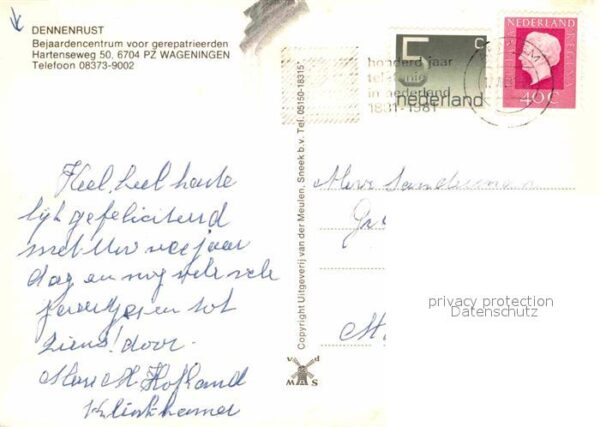 DENNENRUST
Bejaardencentrum voor gerepatrieerden
Hartenseweg 50, 6704 PZ WAGENINGEN
Telefoon 08373-9002
5 c
nederland
NEDERLAND
REGINA
40 c
honderd jaar
telefonie
in nederland
1881-1981
Copyright Uitgeverij van der Meulen, Sneek b.v. Tel. 05150-18315
Heel, heel harte
lijk gefeliciteerd
met Uw verjaar
dag en nog vele vele
en tot
ziens! door
Hofland
Klinkhamer
Mevr
privacy protection
Datenschutz
v d
MAS